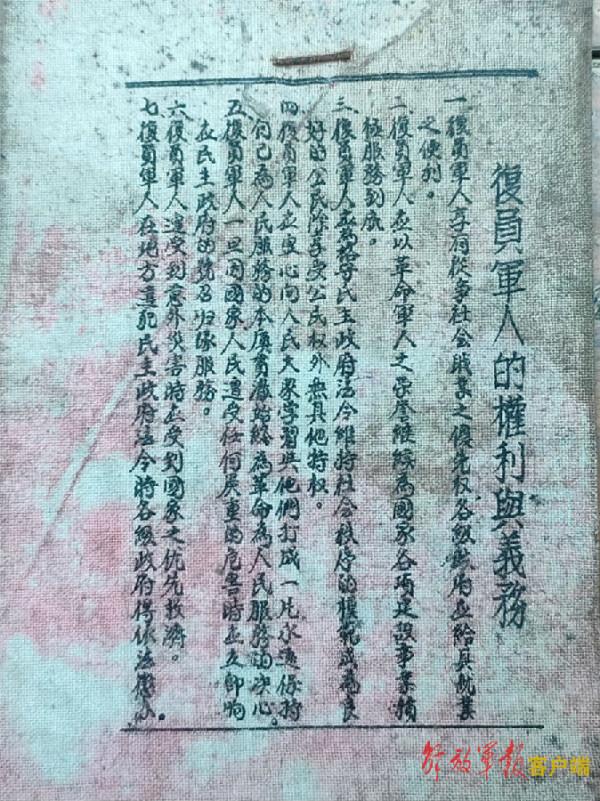 復員軍人的權利與義務
一、復員軍人享有從事社会職業之優先权各級政府应給與就業
之便利。
二、復員軍人应以革命軍人之荣誉继续為國家各項建設事業積
極服務到底。
三、復員軍人应為恪守民主政府法令维持社会秩序的模範成為良
好的公民除享受公民权外無其他特权。
四、復員軍人应虚心向人民大衆学習與他們打成一片永遠保持
自己為人民服務的本质貫澈始終為革命為人民服務的决心。
五、復員軍人一旦因國家人民遭受任何嚴重的危害時应立即响
应民主政府的號召归隊服務。
六、復員軍人遭受到意外災害時应受到國家之优先救濟。
七、復員軍人在地方違犯民主政府法令時各级政府得依法懲办。
解放軍报
客户端